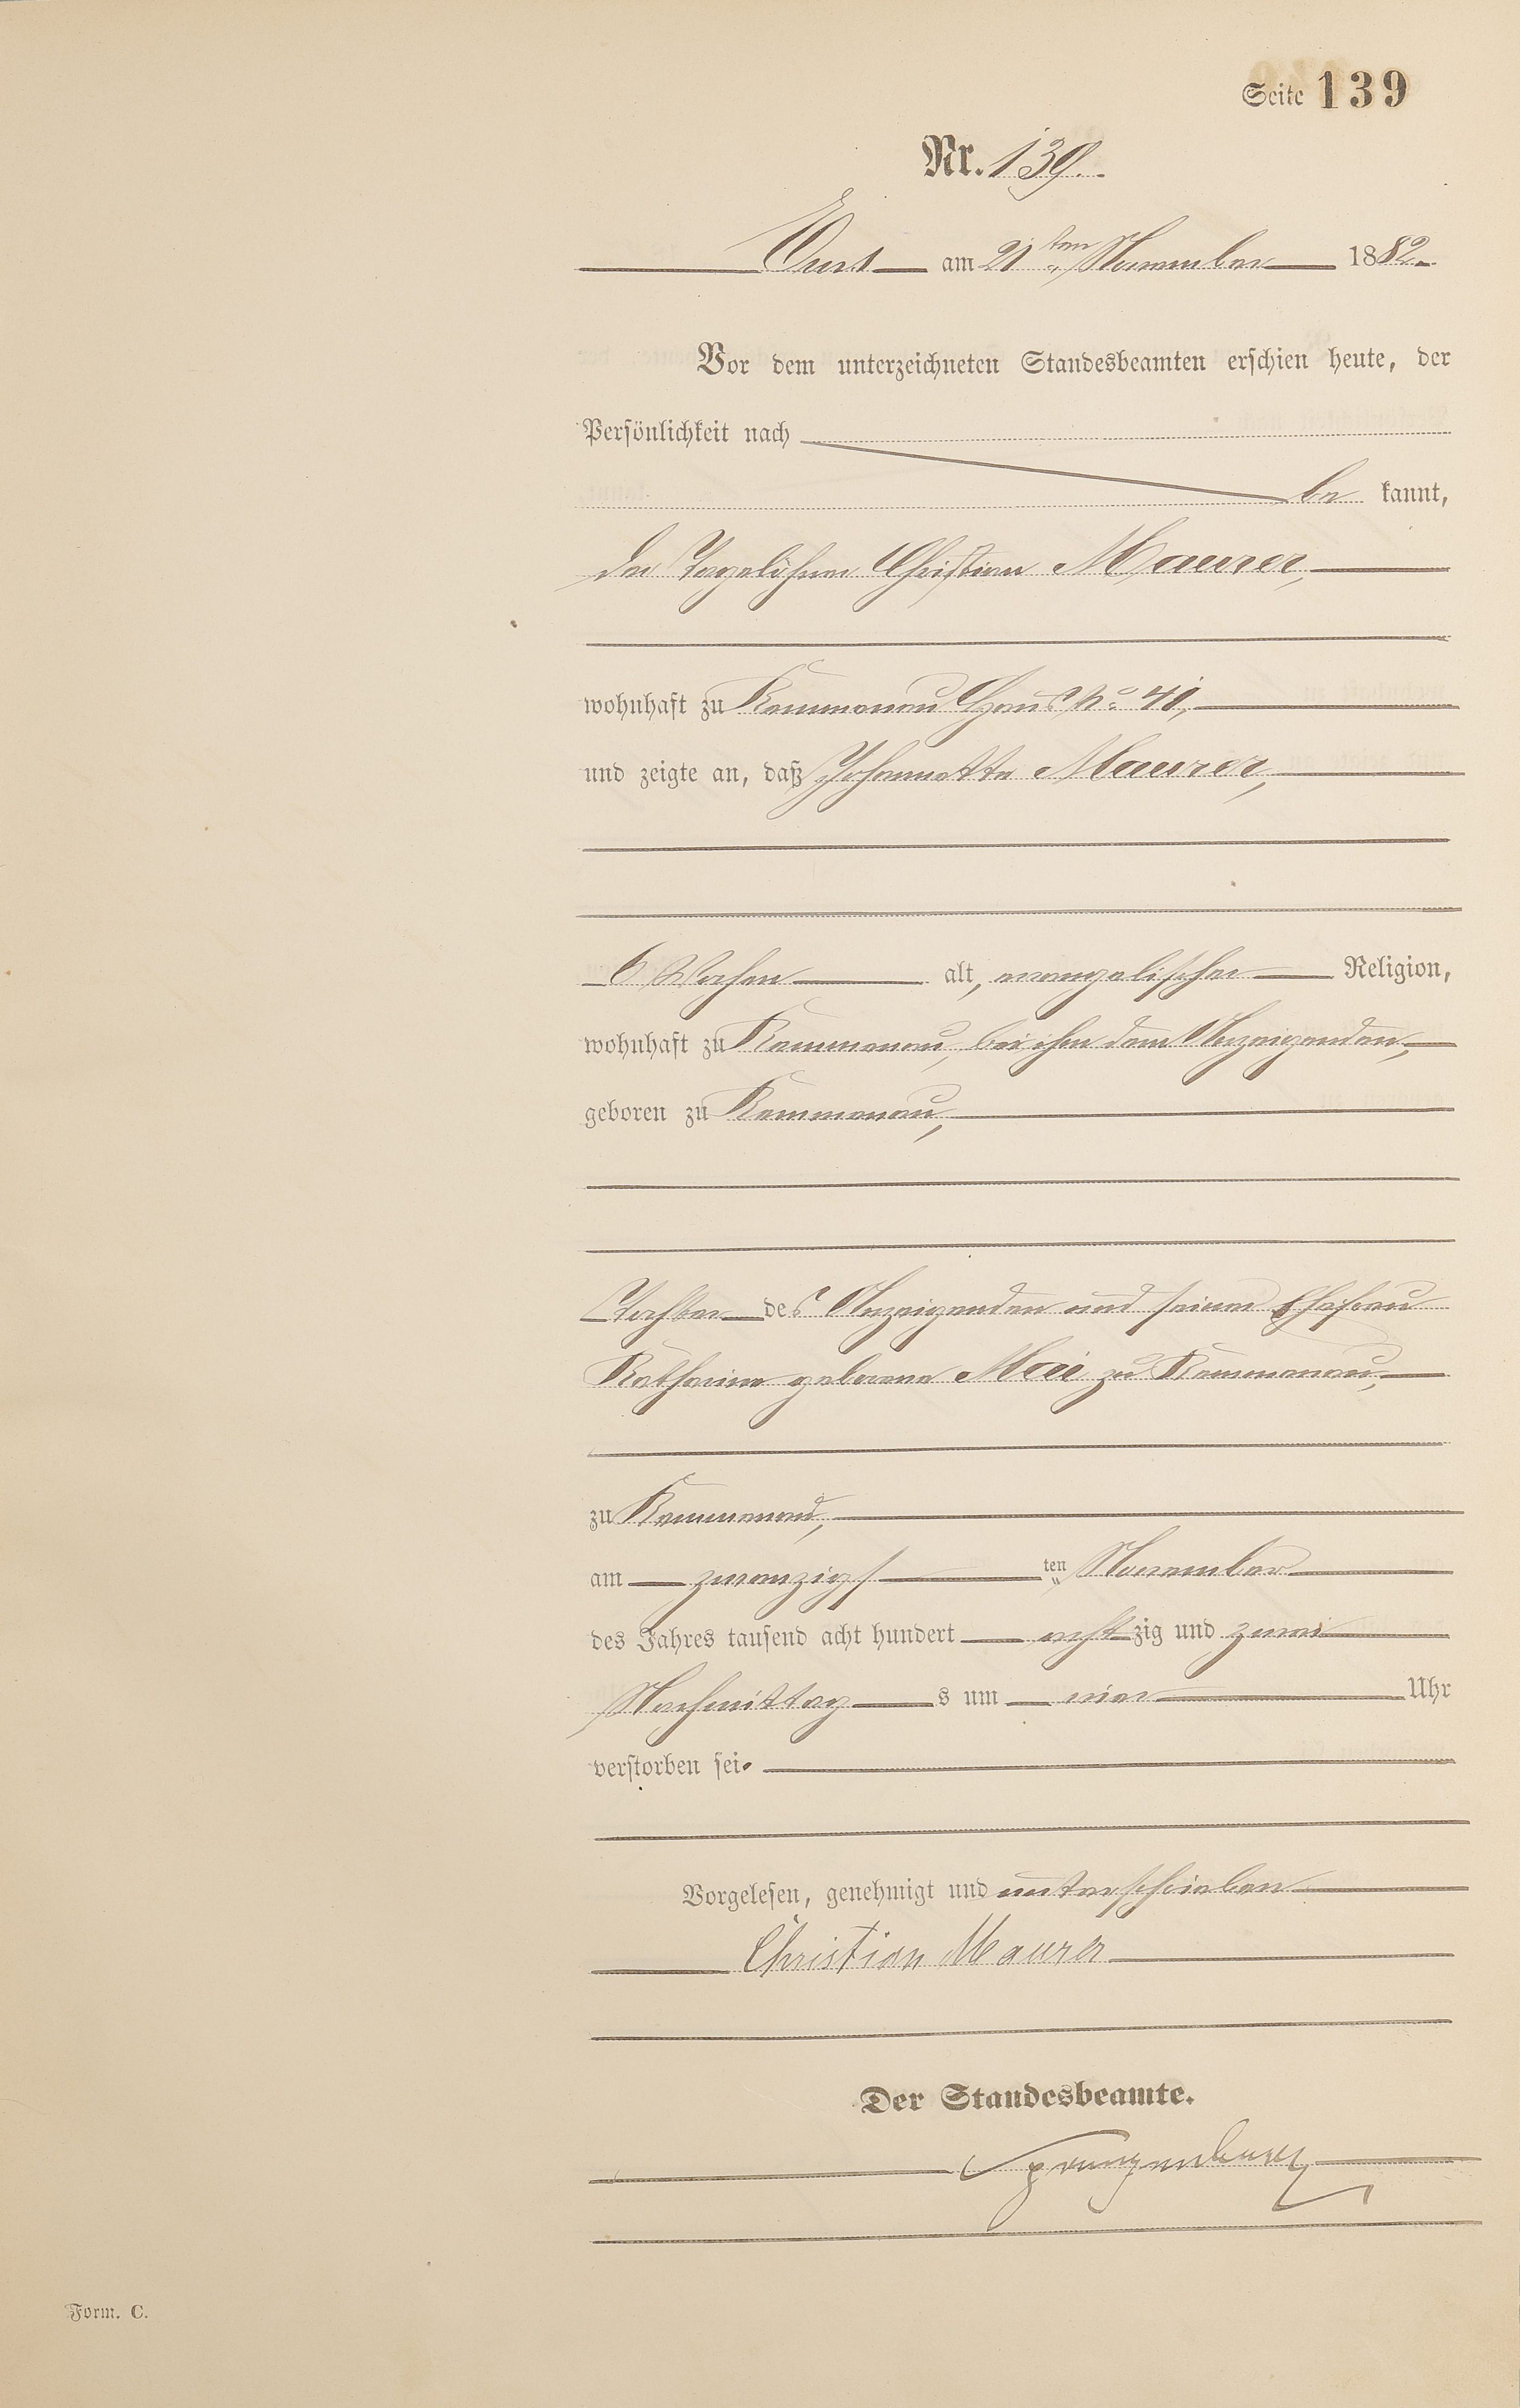 Seite 139
Nr. 139.
Ems am 21ten November 1882.
Vor dem unterzeichneten Standesbeamten erschien heute, der
Persönlichkeit nach
be kannt,
der Tagelöhner Christian Maurer,
wohnhaft zu Kemmenau Haus No 41,
und zeigte an, daß Johannette Maurer,
6 Wochen alt, evangelischer Religion,
wohnhaft zu Kemmenau, bei ihm dem Anzeigenden,
geboren zu Kemmenau,
Tochter des Anzeigenden und seiner Ehefrau
Katharine geborene Mai zu Kemmenau,
zu Kemmenau,
am zwanzigs ten November
des Jahres tausend acht hundert acht zig und zwei
Nachmittag s um vier Uhr
verstorben sei.
Vorgelesen, genehmigt und unterschrieben
Christian Maurer
Der Standesbeamte.
Form. C.